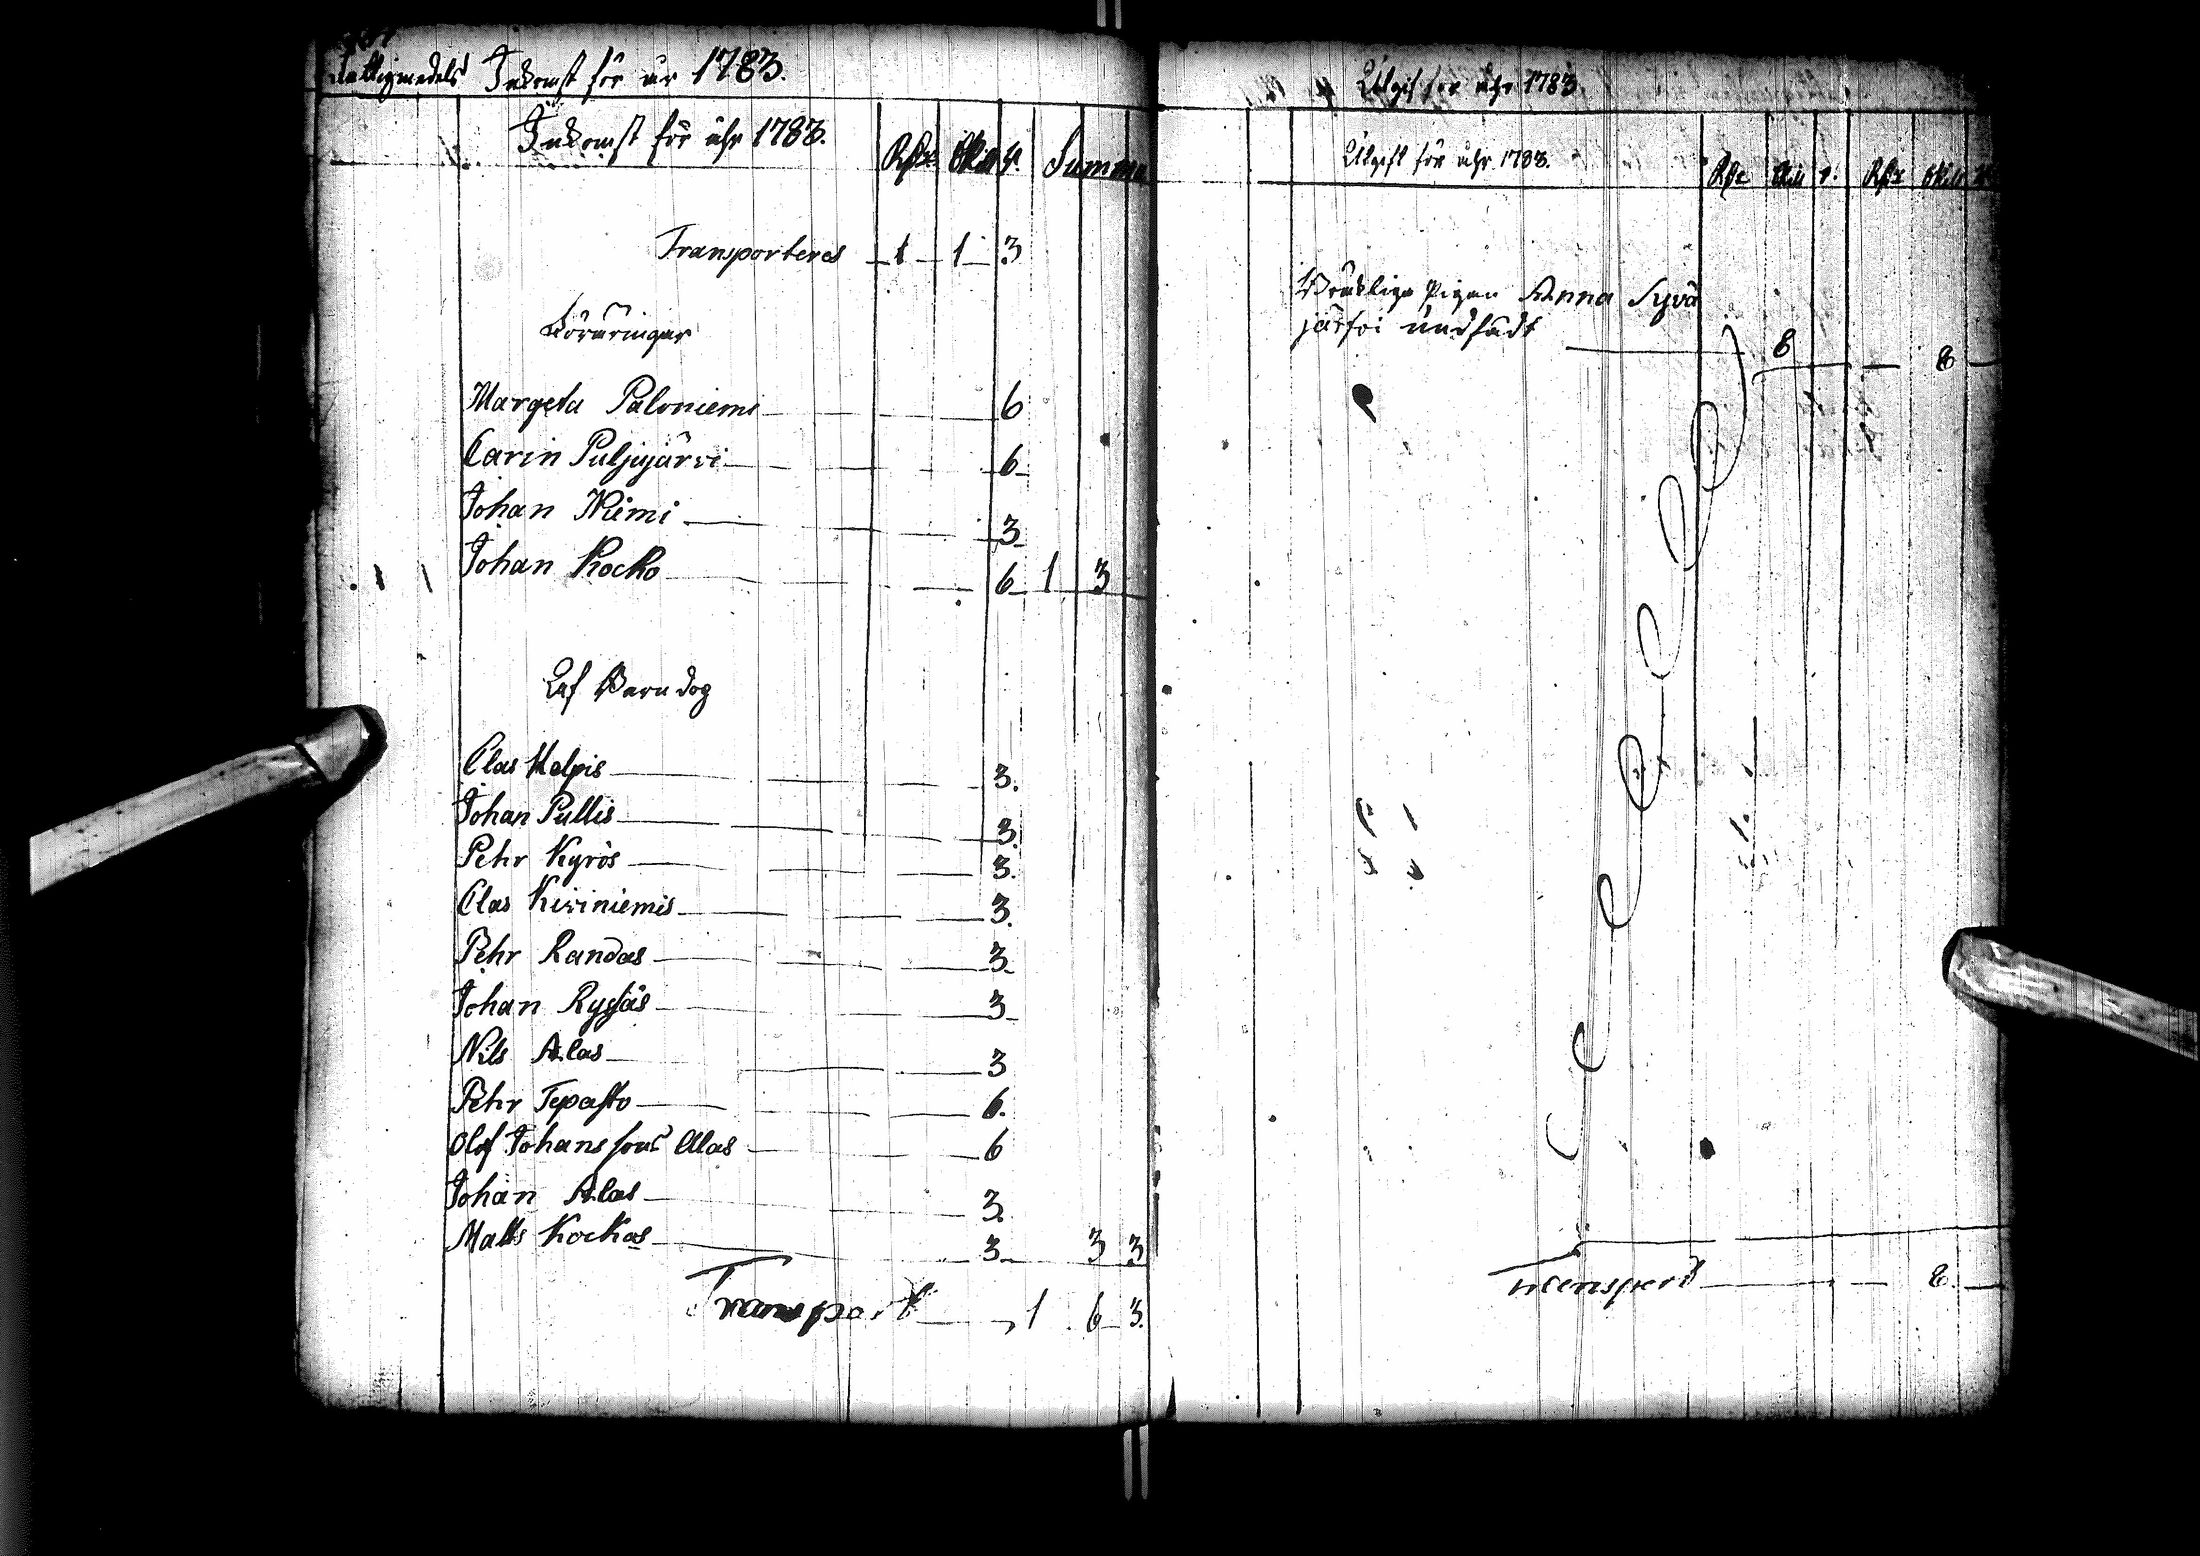 Fattigmedels Inkomst för år 1783.
Inkomst för åhr 1783. Rdr Skill r. Summa
Transporteres 1 1 3
Föräringar
Margeta Paloniemi 6
Carin Puljujärvi 6
Johan Niemi 3
Johan Kocko 6 1 3
Af Barndop
Clas Kelpis 3.
Johan Pullis 3.
Pehr Kyrös 3.
Clas Kiviniemis 3.
Pehr Randas 3
Johan Ryssäs 3
Nils Alas 3
Pehr Tepasto 6.
Olof Johanssons Alas 6
Johan Alas 3.
Matts Kockos 3 3 3
Transport 1 6 3.
Utgift för åhr 1783
Utgift för åhr 1783. Rdr Skill r. Rdr Skill
Bräkliga Pigan Anna Syvä
järfvi undfådt 8 8
Transport 8.